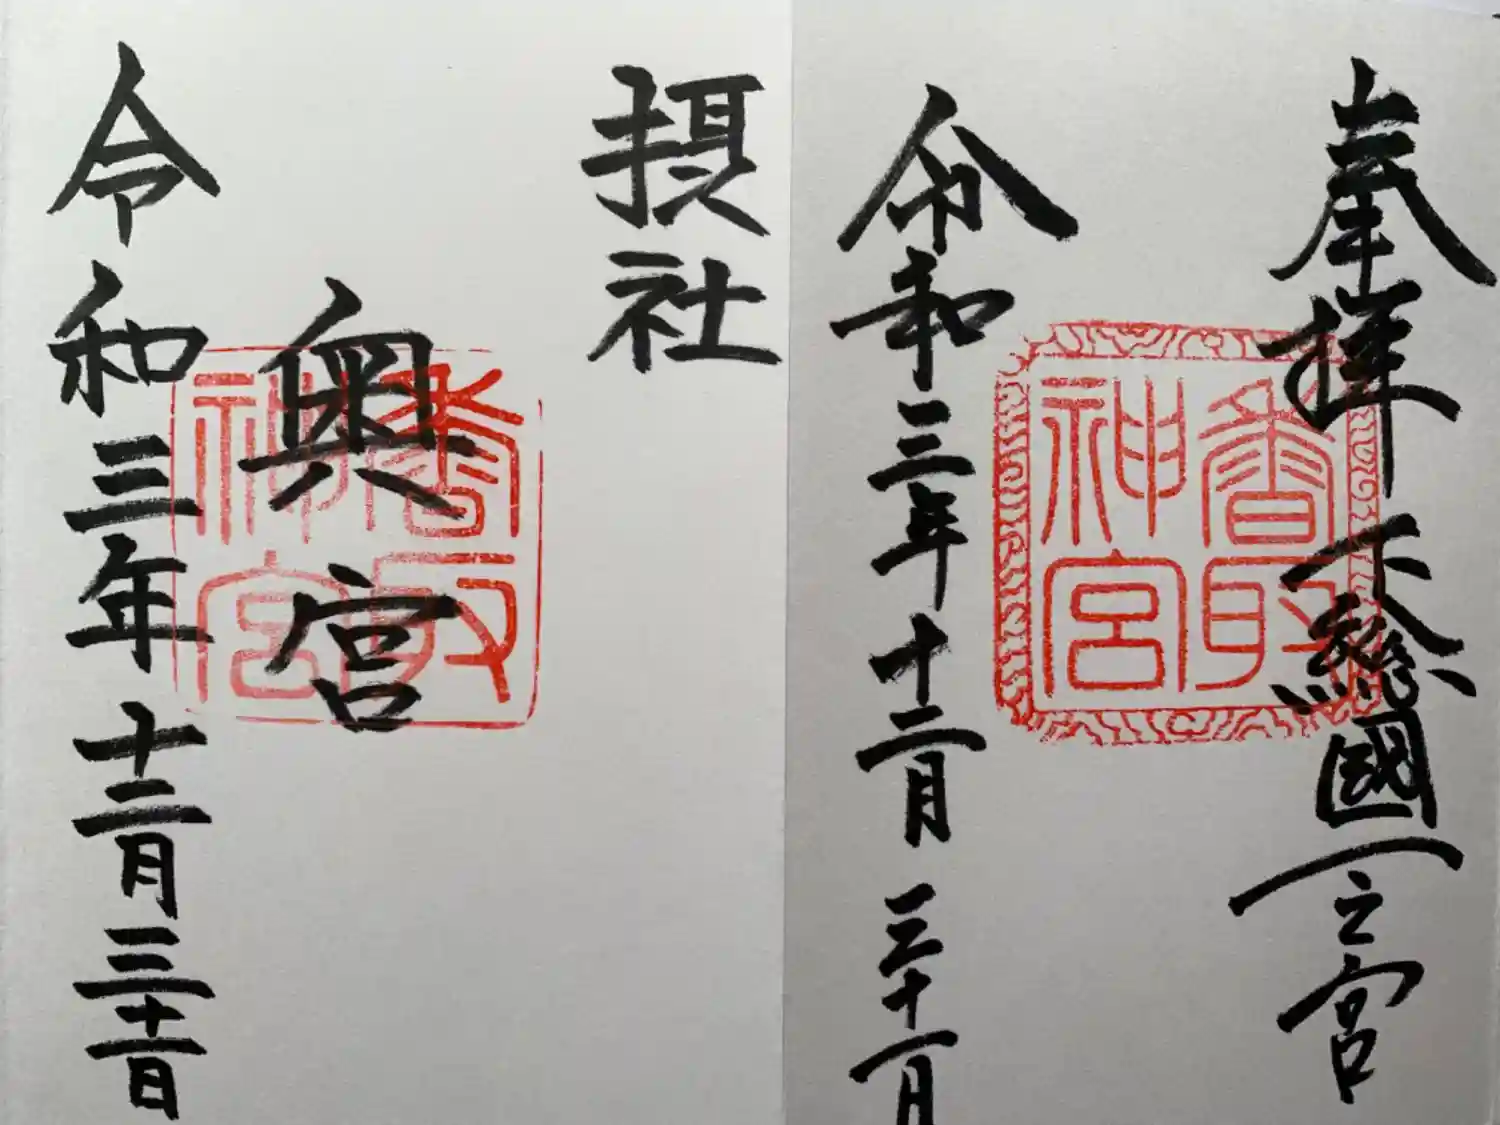 奉拝 下総國一之宮
香取
神宮
令和三年十二月三十一日
摂社
奥宮
香取
神宮
令和三年十二月三十一日